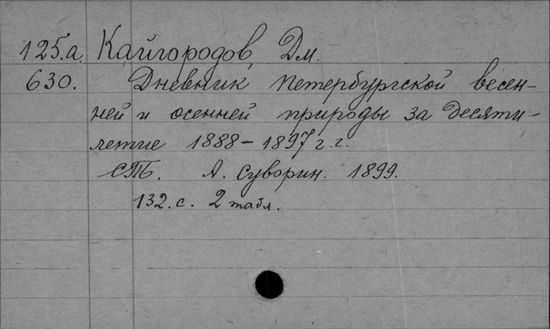 125.а. Кайгородов, Дм.
630. Дневник петербургской весен-
ней и осенней природы за десяти-
летие 1888-1897 г.г.
СПБ. А. Суворин. 1899.
132.с. 2 табл.